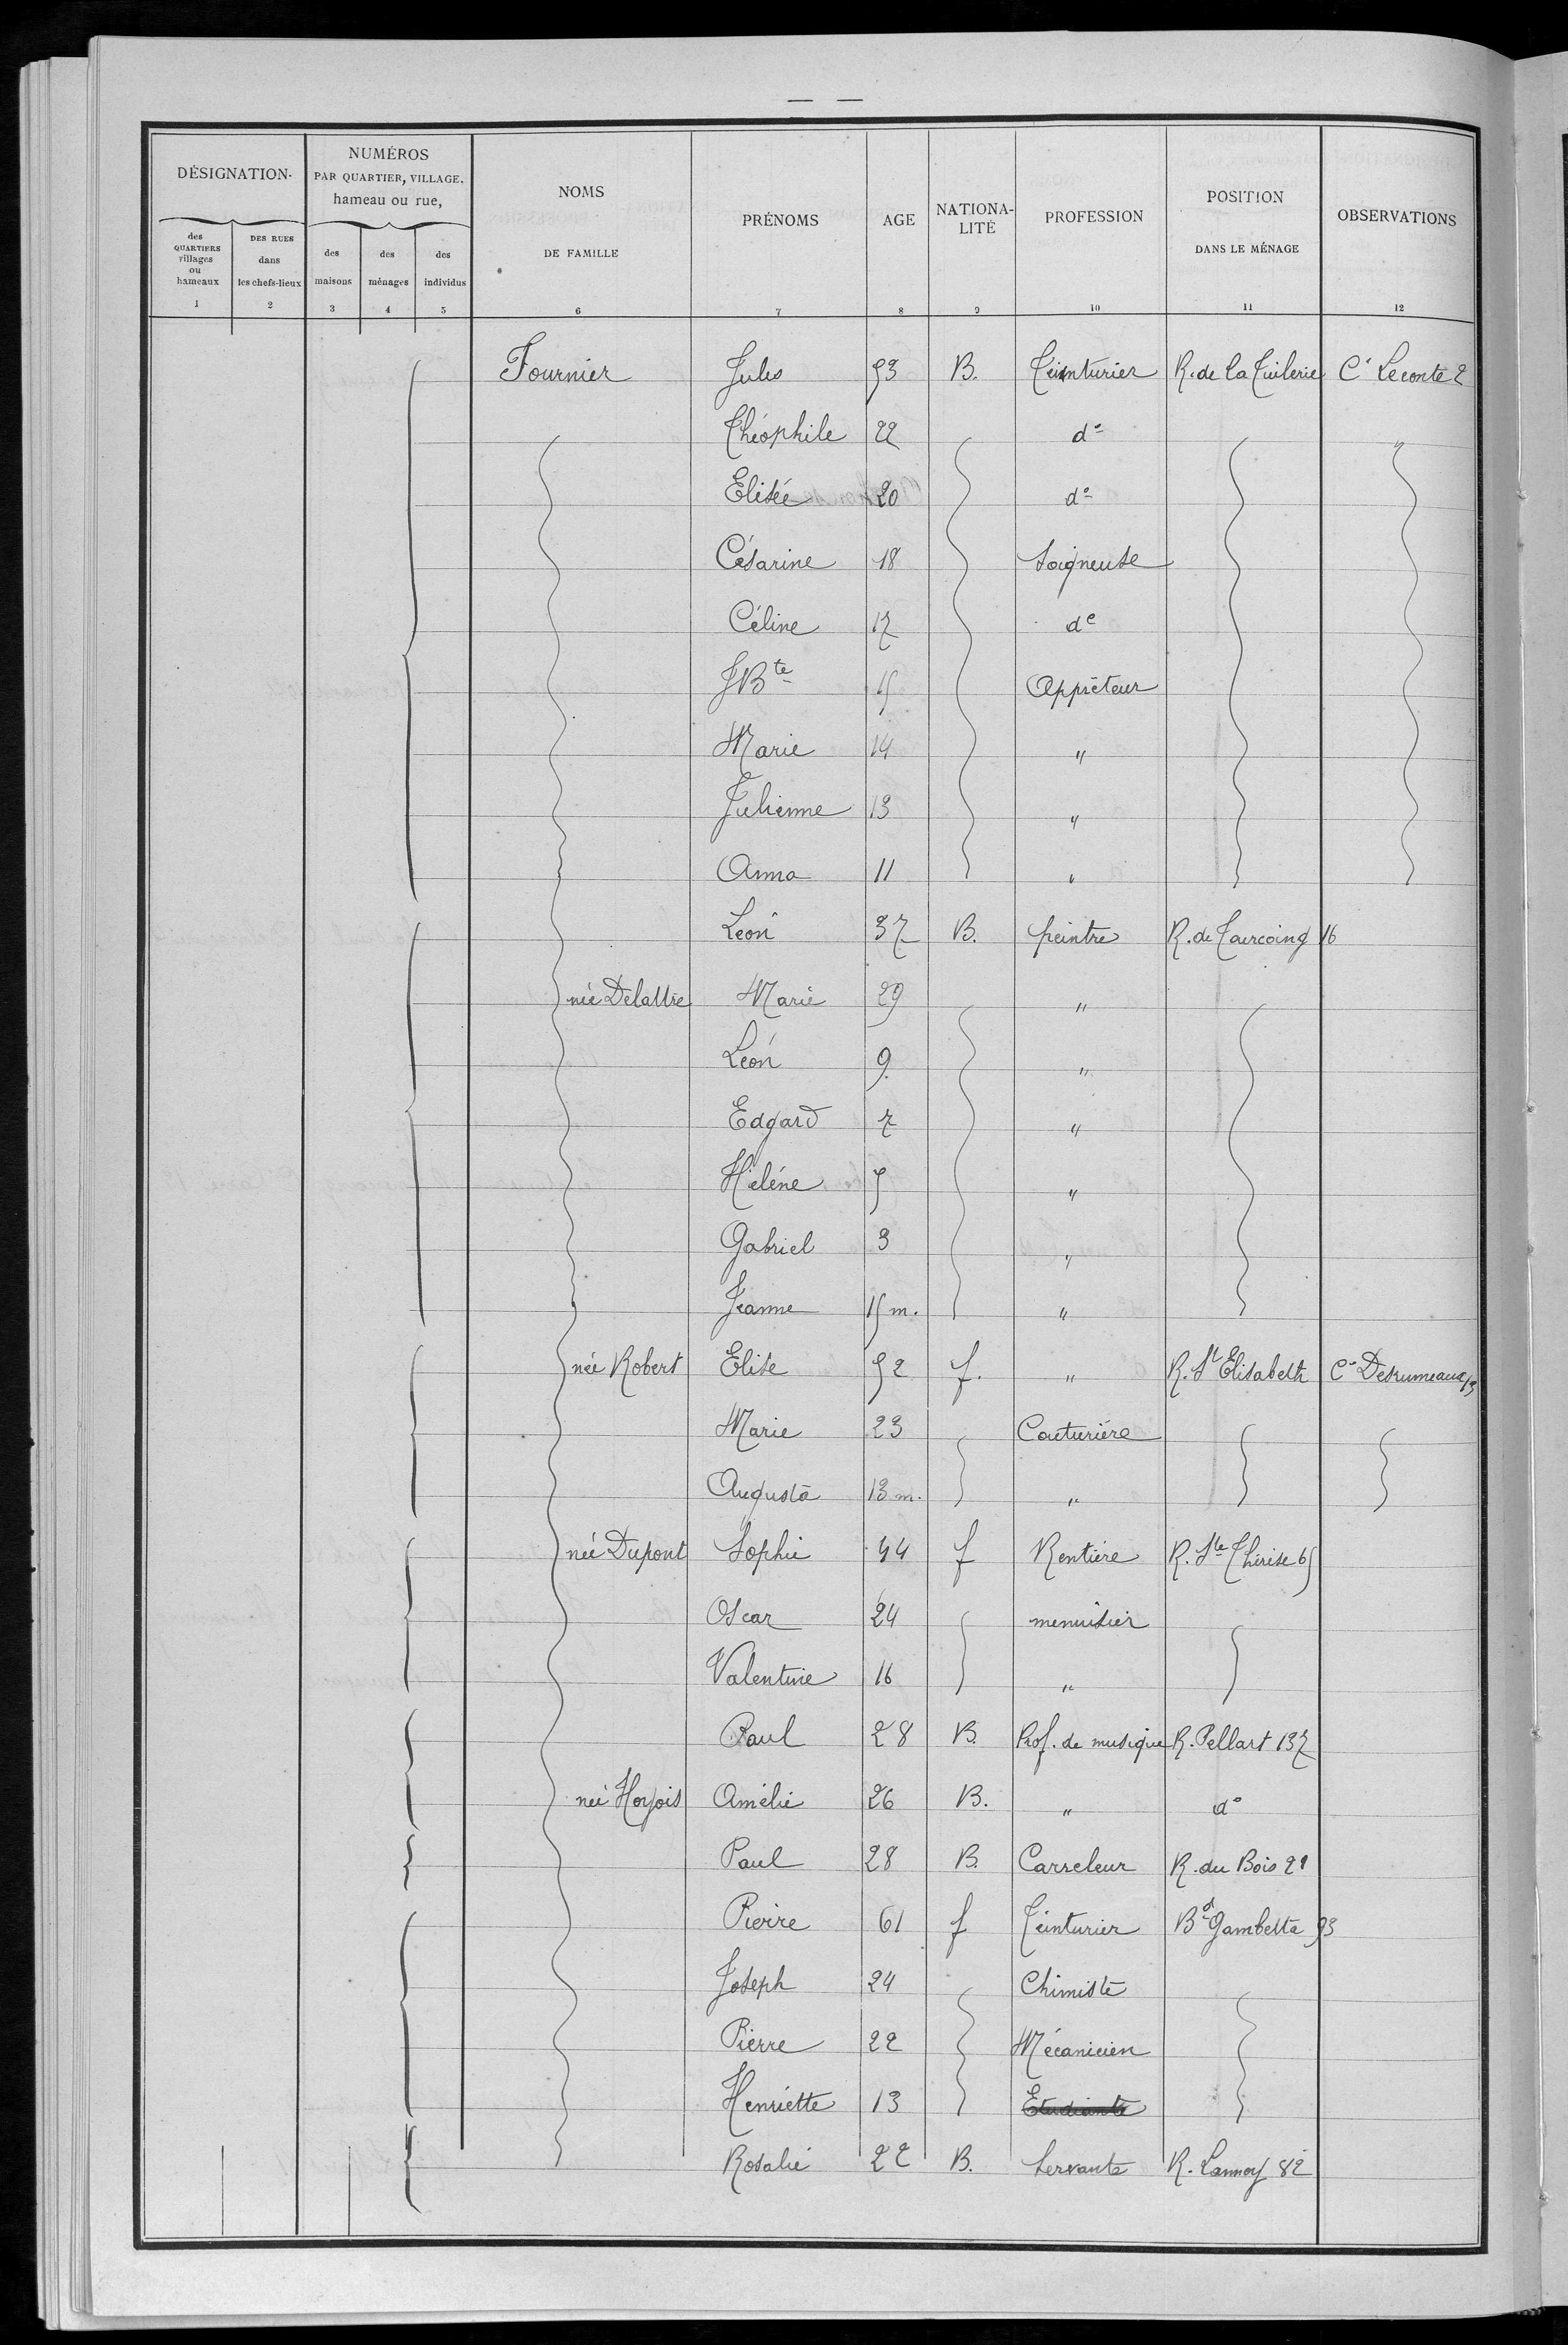 — —
DÉSIGNATION.
NUMÉROS
PAR QUARTIER, VILLAGE.
hameau ou rue,
NOMS
DE FAMILLE
PRÉNOMS
AGE
NATIONA-
LITÉ
PROFESSION
POSITION
DANS LE MÉNAGE
OBSERVATIONS
des
QUARTIERS
villages
ou
hameaux
DES RUES
dans
les chefs-lieux
des
maisons
des
ménages
des
individus
1 2 3 4 5 6 7 8 9 10 11 12
Fournier Jules 53 B. Teinturier R. de la Tuilerie Cr Leconte 2
Théophile 22 do
Elisée 20 do
Césarine 18 Soigneuse
Céline 17 de
JBte 15 Appréteur
Marie 14 "
Julienne 13 "
Anna 11 "
Léon 37 B. peintre R. de Tourcoing 16
née Delattre Marie 29 "
Léon 9 "
Edgard 7 "
Hélène 5 "
Gabriel 3 "
Jeanne 15 m. "
née Robert Elise 52 f. " R. St Elisabeth Cr Desrumeaux 13
Marie 23 Couturière
Augusta 13 m. "
née Dupont Sophie 44 f Rentière R. Ste Thérise 65
Oscar 24 menuisier
Valentine 16 "
Paul 28 B. Prof. de musique R. Pellart 137
née Amélie 26 B. " do
Paul 28 B. Carreleur R. du Bois 21
Pierre 61 f Teinturier Bd Gambetta 93
Joseph 24 Chimiste
Pierre 22 Mécanicien
Henriette 13 Etudiante
Rosalie 22 B. Servante R. Lannoy 82